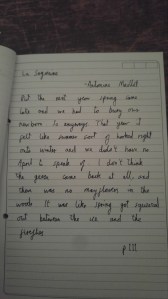 La Sagouine
- Antonine Maillet
But the next year spring came
late and we had to bury two
newborns anyways. That year I
just like summer sort of backed right
into winter and we didn't have no
spirit to speak of. I don't think
the geese came back at all, and
there was no mayflowers in the
woods. It was like spring got squeezed
out between the ice and the
fireflies.
p 111